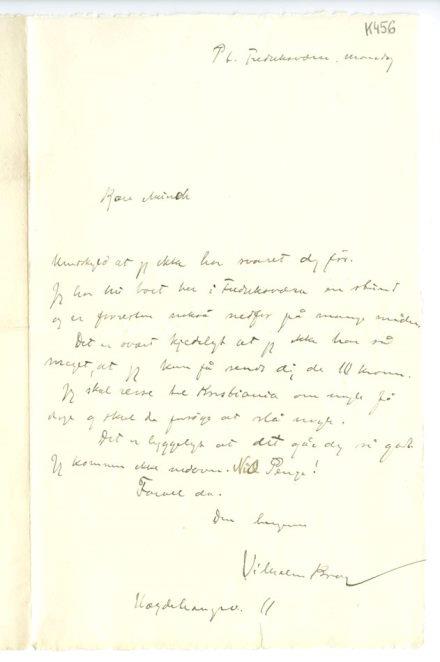 K456
Pt. Fredriksværn, mandag
Kære Munch
Undskyld at jeg ikke har svaret dig før.
Jeg har nu boet her i Fredriksværn en stund
og er forresten også nedfor på mange måder.
Det er svært kjedeligt at jeg ikke har så
meget, at jeg kan få sendt dig de 10 kroner.
Jeg skal reise til Kristiania om nogle få
dage og skal da forsøge at slå nogle.
Det er hyggeligt at det går dig så godt.
Jeg kommer ikke nedover. Nil Penge!
Farvel da.
Din
Vilhelm Krag
11